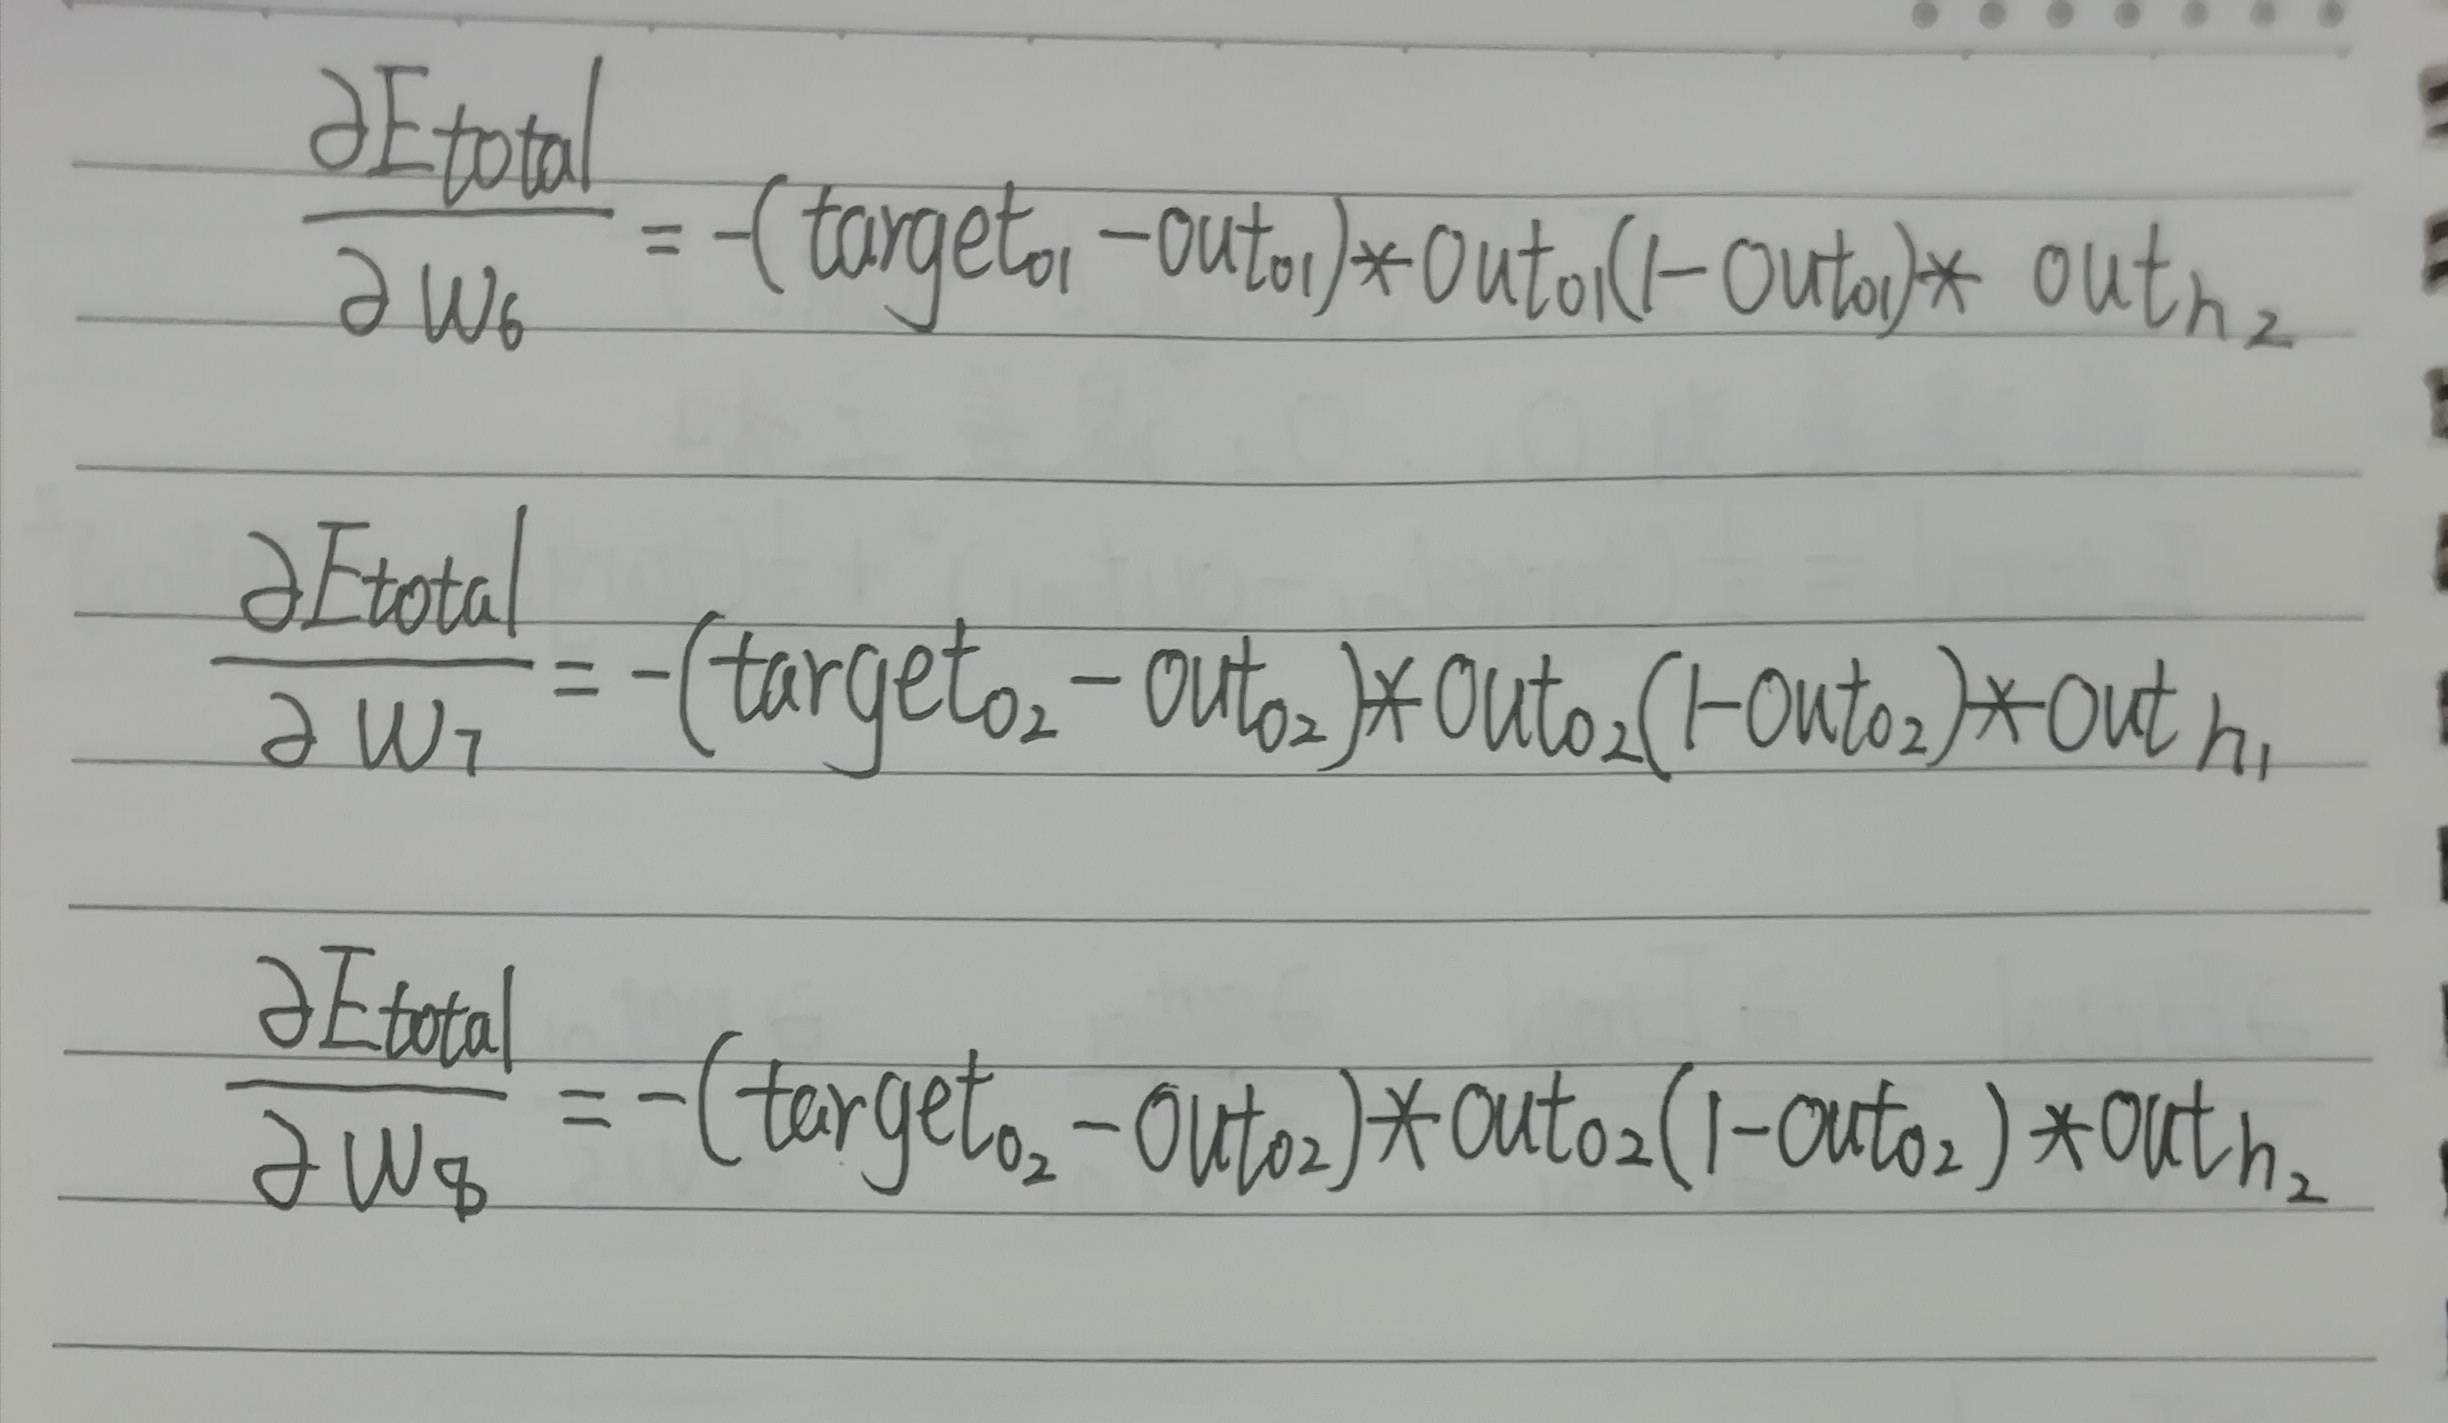 ∂Etotal/∂w₆ = -(target₀₁ - out₀₁) * out₀₁(1 - out₀₁) * out h₂
∂Etotal/∂w₇ = -(target₀₂ - out₀₂) * out₀₂(1 - out₀₂) * out h₁
∂Etotal/∂w₈ = -(target₀₂ - out₀₂) * out₀₂(1 - out₀₂) * out h₂